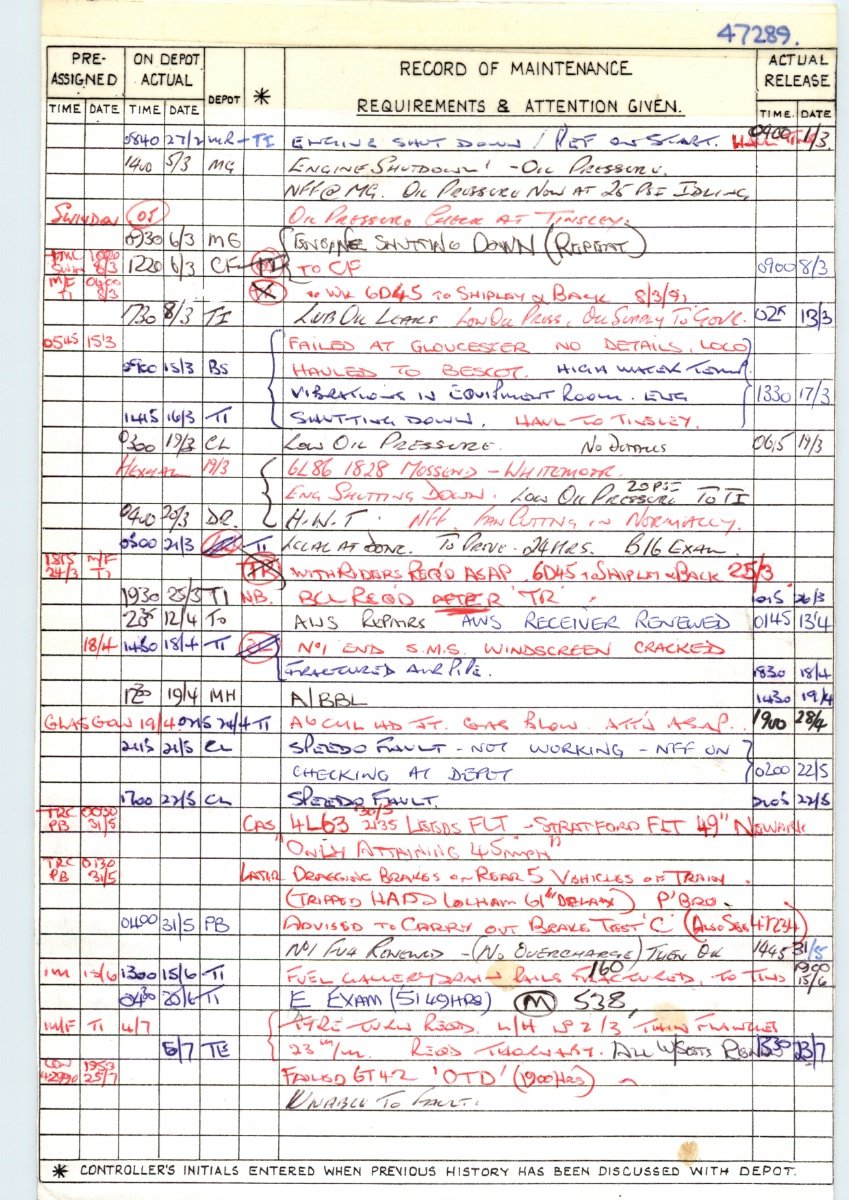 47289.
PRE-ASSIGNED ON DEPOT ACTUAL DEPOT * RECORD OF MAINTENANCE REQUIREMENTS & ATTENTION GIVEN. ACTUAL RELEASE
TIME DATE TIME DATE TIME DATE
0840 27/2 TI ENGINE SHUT DOWN / REF ON START. 0400 1/3
1400 5/3 MG ENGINE SHUTDOWN! - OIL PRESSURE.
NFF @ MG. OIL PRESSURE NOW AT 25 PSI IDLING
SWINDON 05 OIL PRESSURE CHECK AT TINSLEY.
0730 6/3 MG ENGINE SHUTTING DOWN (REPEAT)
1220 6/3 CF TO CF 0900 8/3
M/F TI 8/3 TO WK 6D45 TO SHIPLEY & BACK 8/3/91
1730 8/3 TI LUB OIL LEAKS LOW OIL PRESS, OIL SUPPLY TO GOVR. 13/3
0545 15/3 FAILED AT GLOUCESTER NO DETAILS, LOCO
0900 15/3 BS HAULED TO BESCOT. HIGH WATER TEMP.
VIBRATIONS IN EQUIPMENT ROOM. ENG 1330 17/3
1415 16/3 TI SHUTTING DOWN. HAUL TO TINSLEY.
0300 19/3 CL LOW OIL PRESSURE. NO DETAILS 0615 19/3
HEXHAM 19/3 6L86 1828 MOSSEND - WHITEMOOR.
ENG SHUTTING DOWN. LOW OIL PRESSURE 20 PSI TO TI
0400 20/3 DR H.W.T. NFF. FAN CUTTING IN NORMALLY.
0300 21/3 TI TO PROVE. 24 HRS. B16 EXAM.
1815 24/3 M/F TI TR WITH RIDERS REQ'D ASAP. 6D45 TO SHIPLEY & BACK 25/3
1930 25/3 TI NB. BCL REQ'D AFTER 'TR'. 1015 26/3
12/4 TO AWS REPAIRS AWS RECEIVER RENEWED 0145 13/4
18/4 1430 18/4 TI No1 END S.M.S. WINDSCREEN CRACKED
FRACTURED AIR PIPE. 1830 18/4
1230 19/4 MH A/BBL 1430 19/4
GLASGOW 19/4 0215 24/4 TI A6 CYL HD JT. GAS BLOW. ATT'N ASAP. 1900 28/4
2115 21/5 CL SPEEDO FAULT - NOT WORKING - NFF ON
CHECKING AT DEPOT 0200 22/5
1700 22/5 CL SPEEDO FAULT. 2105 22/5
TRC PB 0030 31/5 CAS 4L63 30/5 2135 LEEDS FLT - STRATFORD FLT 49" NEWARK
"ONLY ATTAINING 45 MPH"
TRC PB 0130 31/5 LATER DRAGGING BRAKES ON REAR 5 VEHICLES OF TRAIN.
(TRIPPED HABD LOLHAM 61" DELAY) P'BRO.
0400 31/5 PB ADVISED TO CARRY OUT BRAKE TEST 'C' (ALSO SEE 47234)
No1 FV4 RENEWED - (NO OVERCHARGE) THEN OK 1445 31/5
IM 15/6 1300 15/6 TI FUEL GALLERY DRAIN RAILS FRACTURED, 160 1900 15/6
0430 20/6 TI E EXAM (5149 HRS) M 538,
M/F TI 4/7 TYRE TURN REQD. L/H No 2/3, THIN FLANGES
5/7 TE 23 m/m. REQD THORNABY. ALL W/SETS 1530 23/7
1953 25/7 FAILED 'OTD' (1900 HRS)
UNABLE TO FAULT.
* CONTROLLER'S INITIALS ENTERED WHEN PREVIOUS HISTORY HAS BEEN DISCUSSED WITH DEPOT.